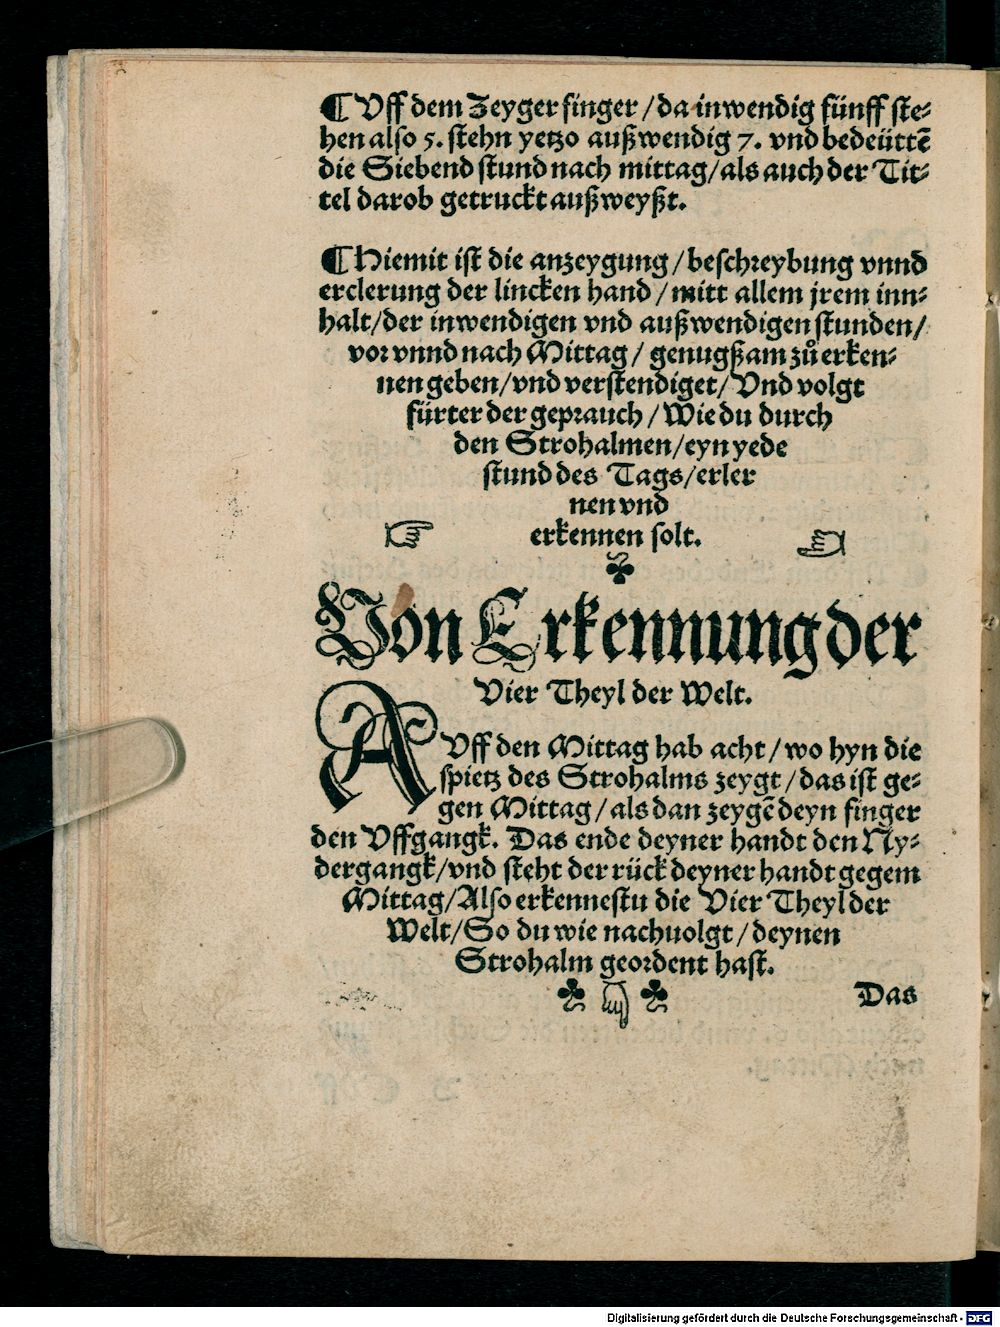 ¶ Vff dem Zeyger finger / da inwendig fünff ste-
hen also 5. stehn yetzo außwendig 7. vnd bedeüttē
die Siebend stund nach mittag / als auch der Tit-
tel darob getruckt außweyßt.
¶ Hiemit ist die anzeygung / beschreybung vnnd
erclerung der lincken hand / mitt allem jrem inn-
halt / der inwendigen vnd außwendigen stunden /
vor vnnd nach Mittag / genugßam zů erken-
nen geben / vnd verstendiget / Vnd volgt
fürter der geprauch / Wie du durch
den Strohalmen / eyn yede
stund des Tags / erler
nen vnd
☞ erkennen solt. ☜
♣
Von Erkennung der
Vier Theyl der Welt.
AVff den Mittag hab acht / wo hyn die
spietz des Strohalms zeygt / das ist ge-
gen Mittag / als dan zeygē deyn finger
den Vffgangk. Das ende deyner handt den Ny-
dergangk / vnd steht der rück deyner handt gegem
Mittag / Also erkennestu die Vier Theyl der
Welt / So du wie nachuolgt / deynen
Strohalm geordent hast.
♣ ☟ ♣ Das
Digitalisierung gefördert durch die Deutsche Forschungsgemeinschaft - DFG